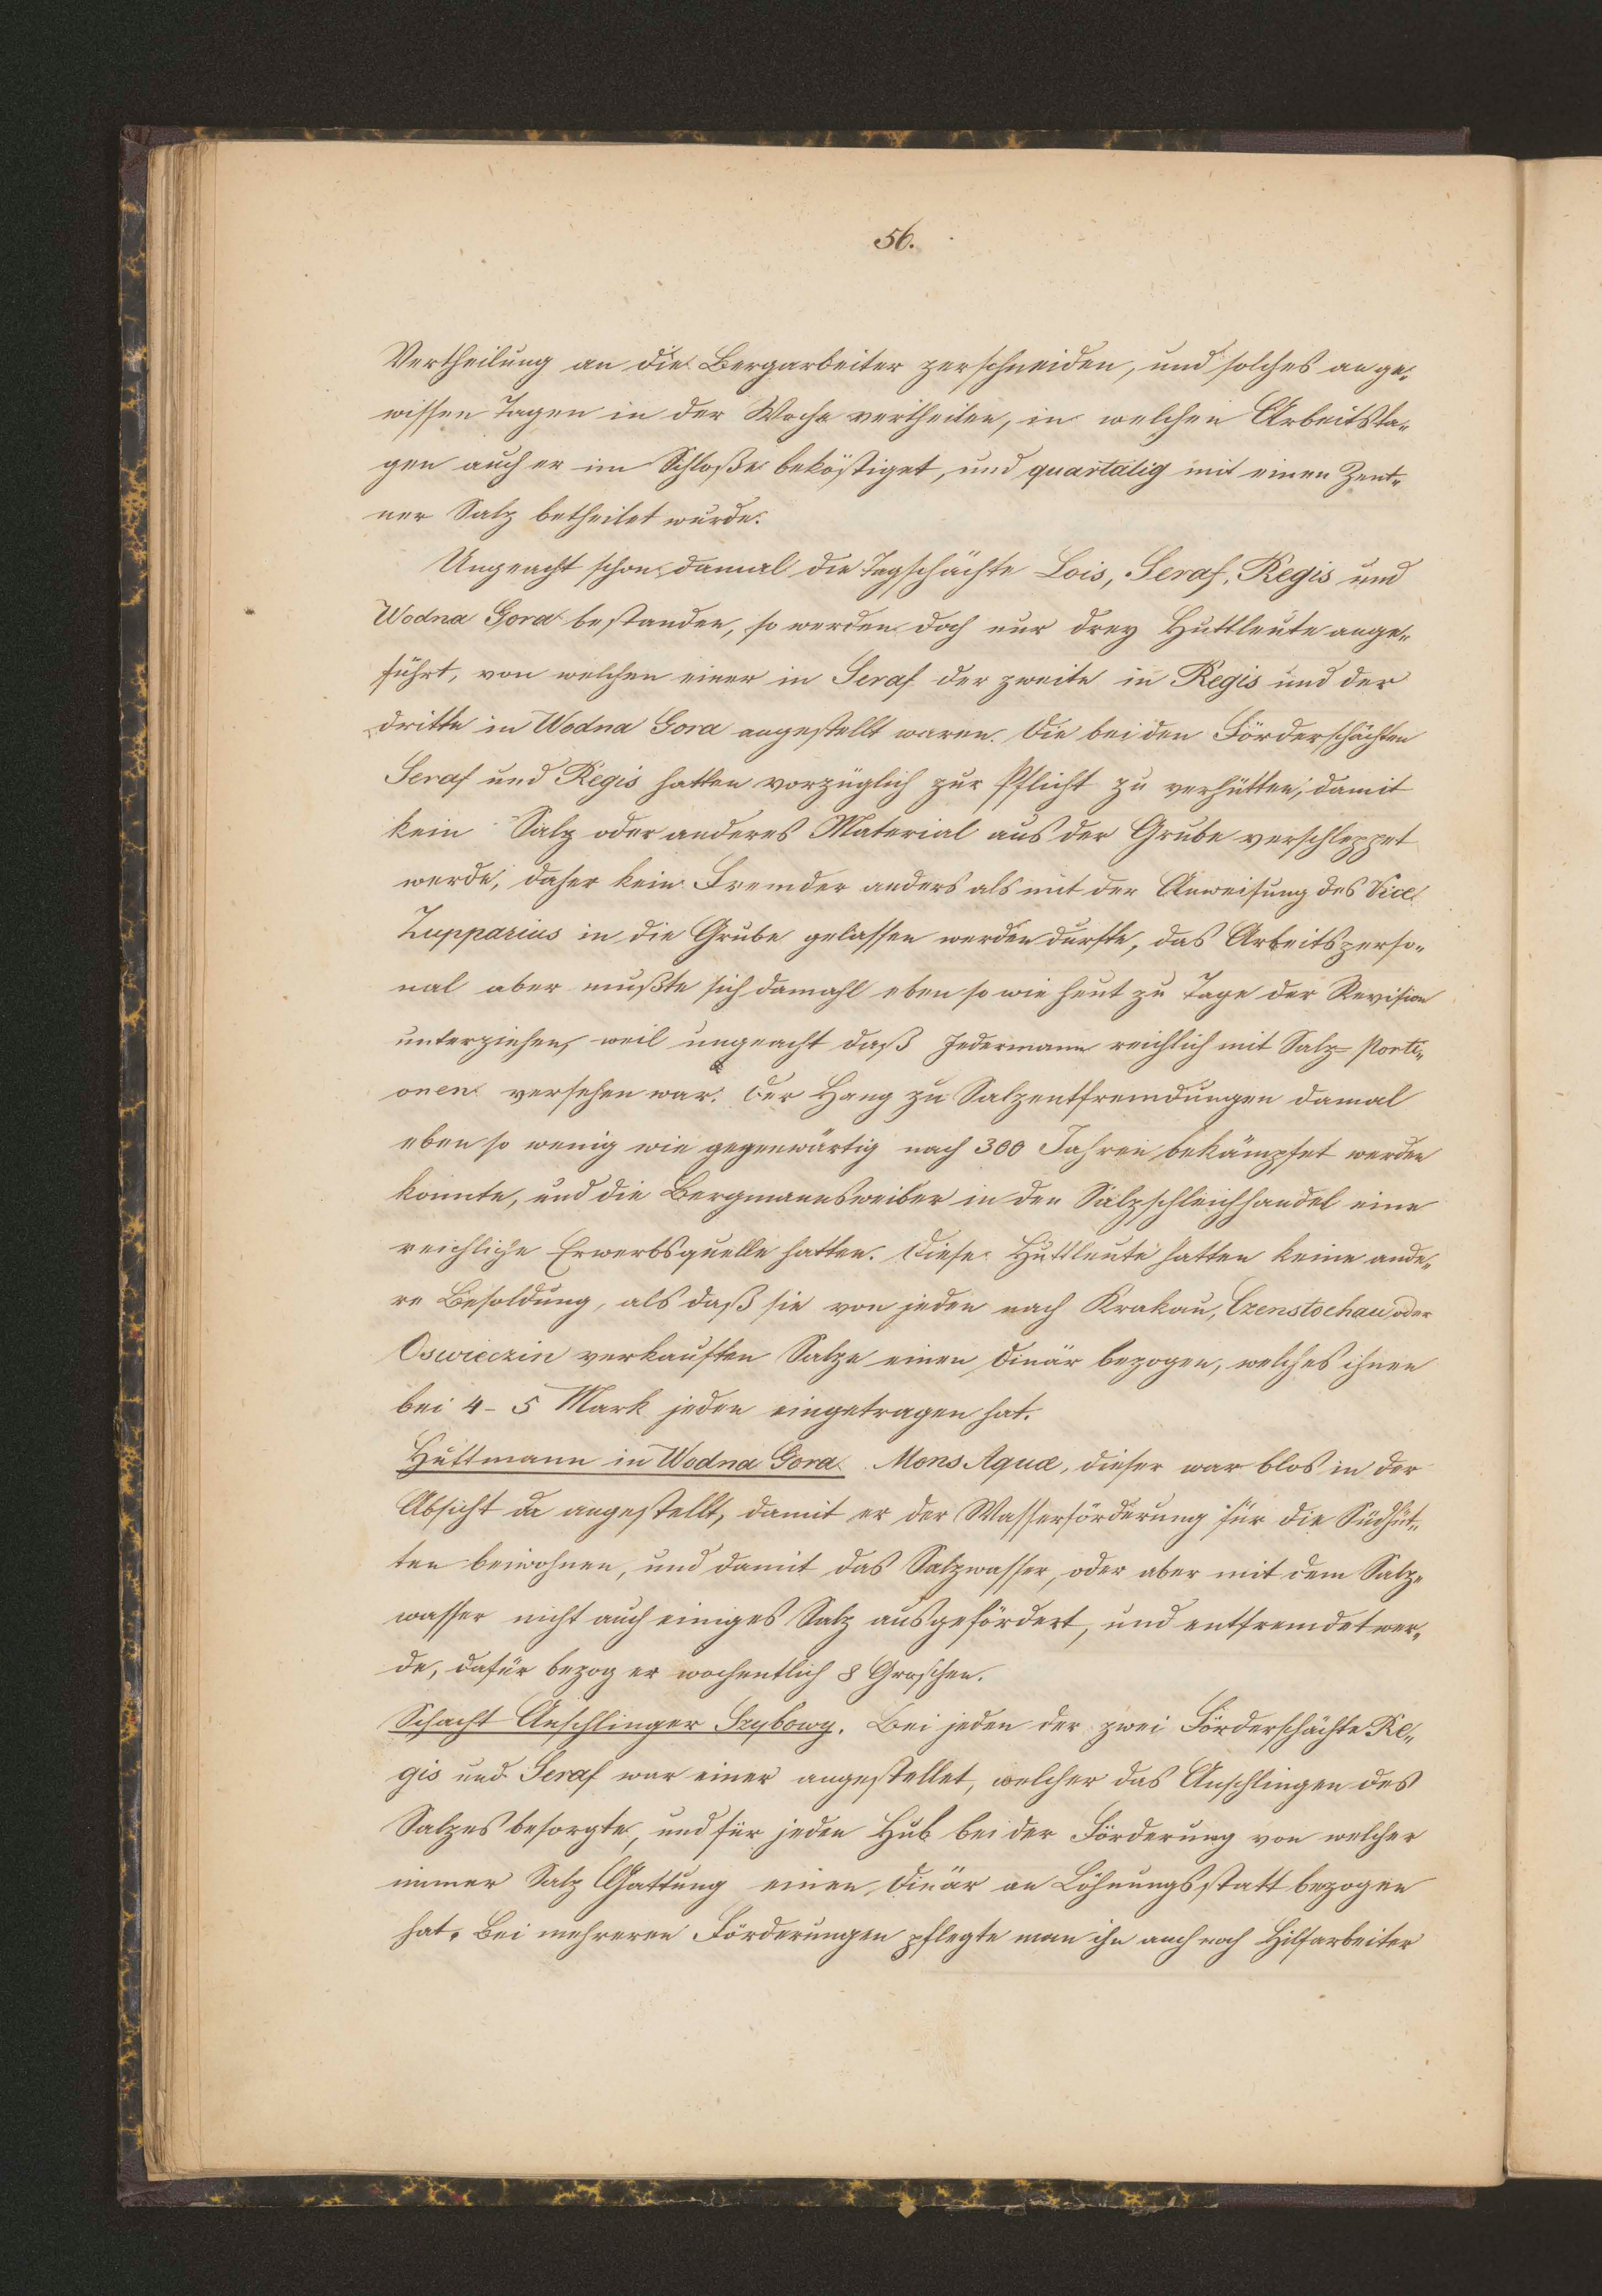 56.
Vertheilung an die Bergarbeiter zerschneiden, und solches an ge„
wissen Tagen in der Woche vertheilen, in welchen Arbeitsta„
gen auch er im Schloße beköstiget, und quartalig mit einen Zent„
ner Salz betheilet wurde.
Ungeacht schon damal die Tagschächte Lois, Seraf, Regis und
Wodna Gora bestanden, so werden doch nur drey Huttleute ange„
führt, von welchen einer in Seraf der zweite in Regis und der
dritte in Wodna Gora angestellt waren. Die bei den Förderschächten
Seraf und Regis hatten vorzüglich zur Pflicht zu verhütten, damit
kein Salz oder anderes Material aus der Grube verschleppet
werde, daher kein Fremder anders als mit der Anweisung des Vice
Zupparius in die Grube gelassen werden durfte, das Arbeitsperso„
nal aber mußte sich damahl eben so wie heut zu Tage der Revision
unterziehen, weil ungeacht daß Jedermann reichlich mit Salz-Porti„
onen versehen war. Der Hang zu Salzentfremdungen damal
eben so wenig wie gegenwärtig nach 300 Jahren bekämpfet werden
konnte, und die Bergmannsweiber in den Salzschleichhandel eine
reichliche Erwerbsquelle hatten. Diese Huttleute hatten keine ande„
re Besoldung, als daß sie von jeden nach Krakau, Czenstochau oder
Oswieczin verkauften Salze einen Dinär bezogen, welches ihnen
bei 4-5 Mark jeden eingetragen hat.
Huttmann in Wodna Gora Mons Aquæ, dieser war blos in der
Absicht da angestellt, damit er der Wasserförderung für die Südhüt„
ten beiwohnen, und damit das Salzwasser, oder aber mit dem Salz„
wasser nicht auch einiges Salz ausgefördert, und entfremdet wer„
de, dafür bezog er wochentlich 8 Groschen.
Schacht Anschlinger Szybowy. Bei jeden der zwei Förderschächte Re„
gis und Seraf war einer angestellet, welcher das Anschlingen des
Salzes besorgte, und für jeden Hub bei der Förderung von welcher
immer Salz Gattung einen Dinär an Löhnungsstatt bezogen
hat. Bei mehreren Förderungen pflegte man ihn auch noch Hilfarbeiter